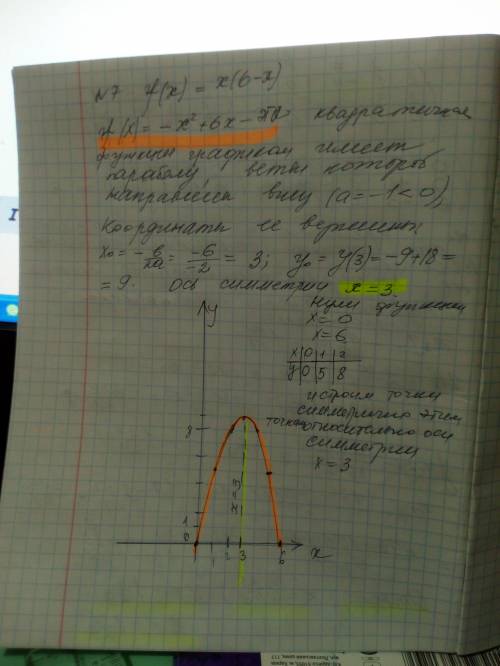 N7 y(x) = x(6-x)
y(x) = -x² + 6x - это квадратичная
функция графиком имеет
параболу, ветви которой
направлены вниз (a = -1 < 0),
координаты ее вершины
x₀ = -b/2a = -6/-2 = 3; y₀ = y(3) = -9+18 =
= 9. Ось симметрии x = 3.
Нули функции
x = 0
x = 6
x 0 1 2
y 0 5 8
и строим точки
симметрично этим
точкам относительно оси
симметрии
x = 3
y
9
x = 3
1
0
1 2 3 6 x